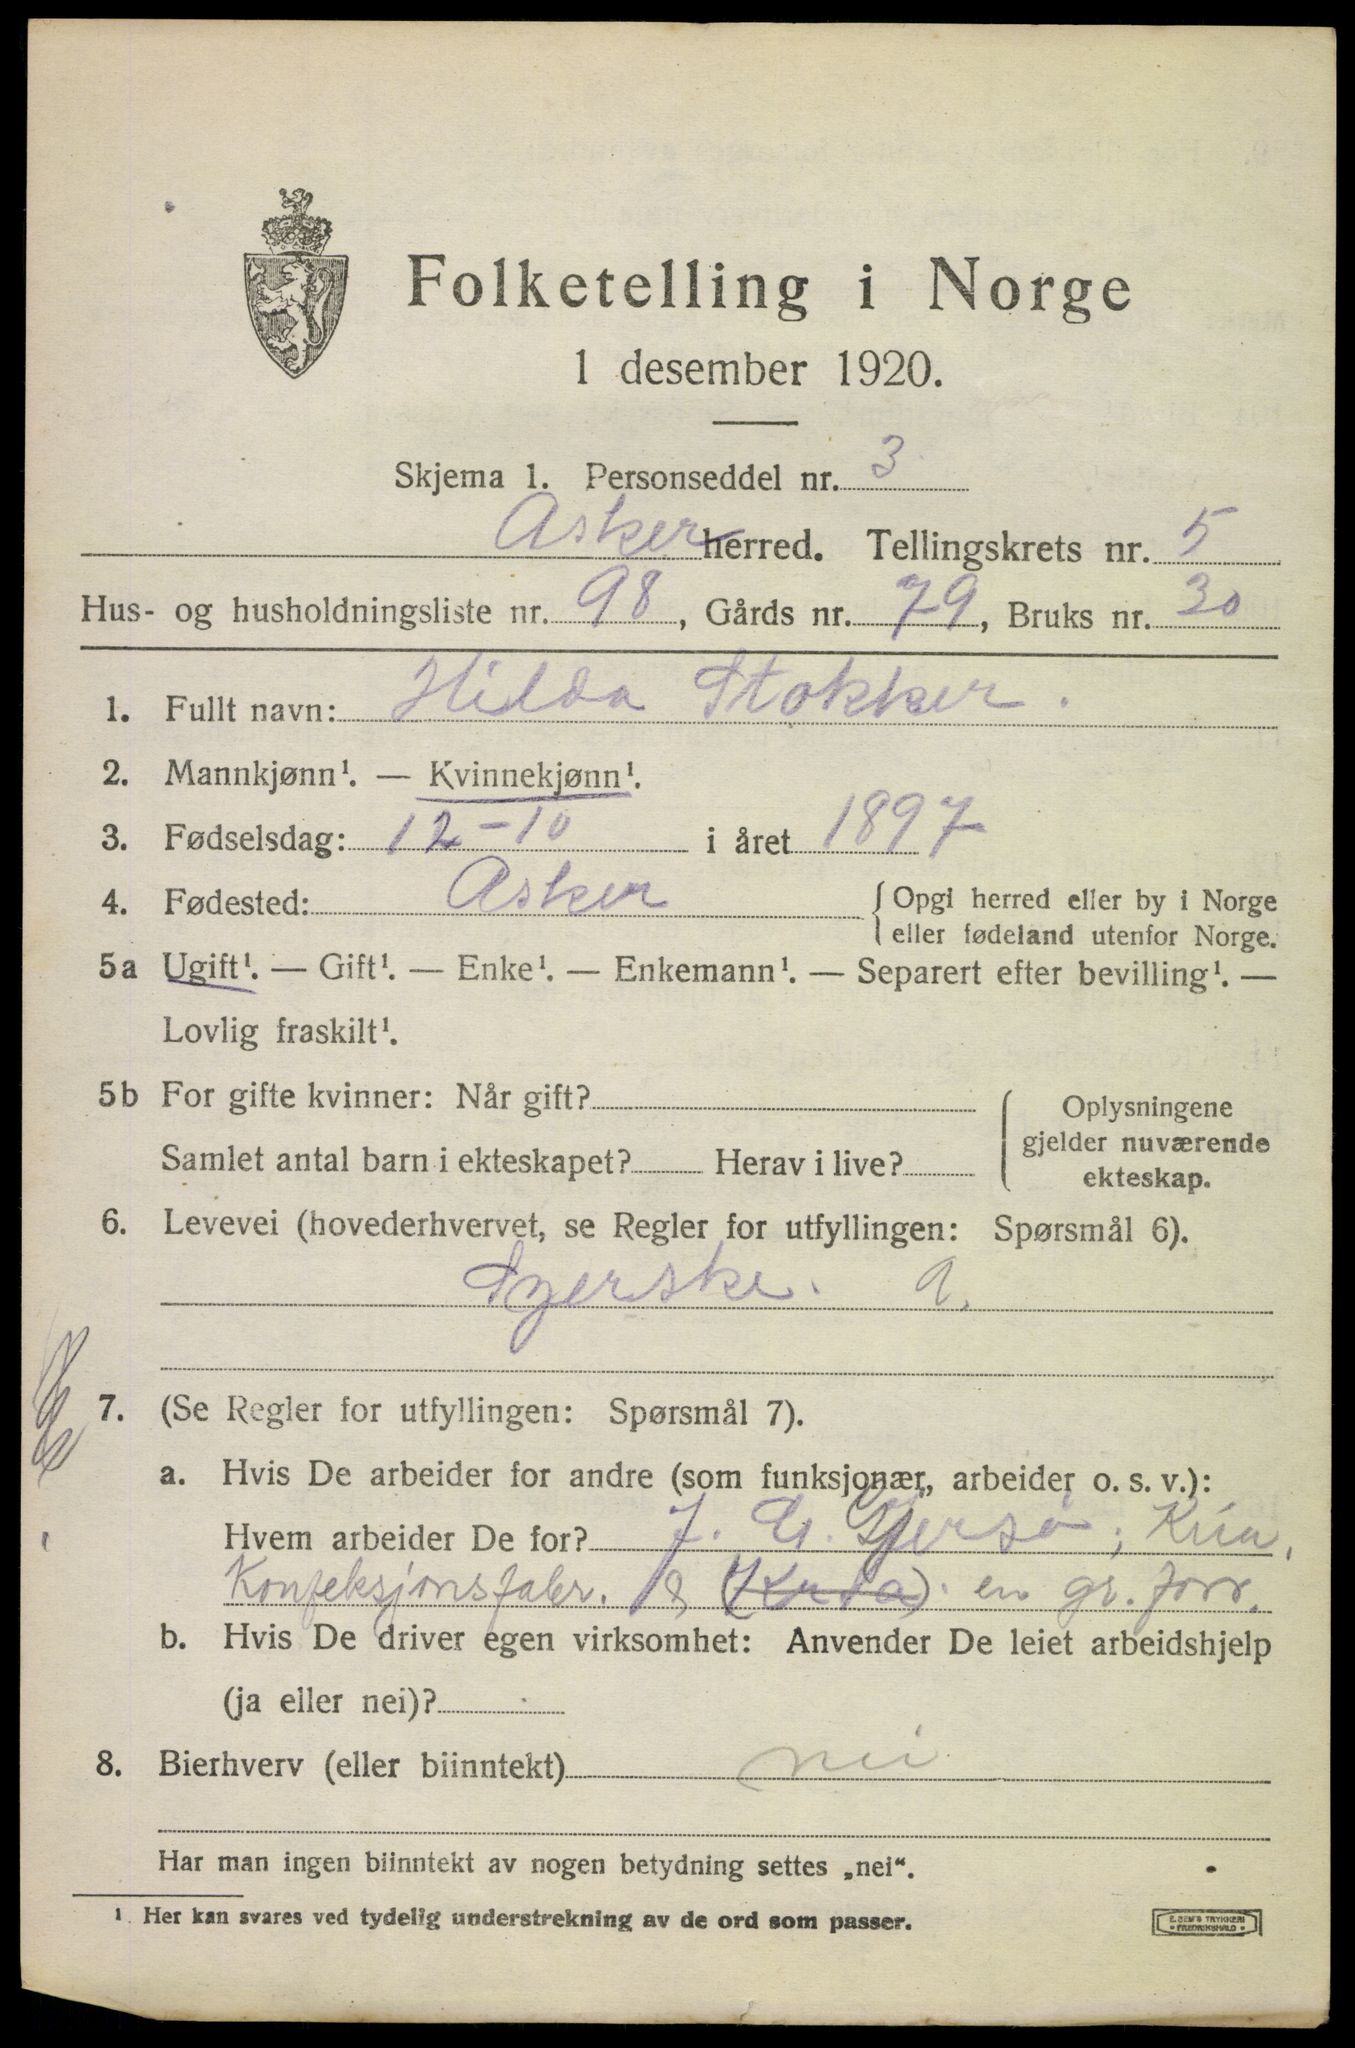 Folketelling i Norge
1 desember 1920.
Skjema 1. Personseddel nr. 3
Asker herred. Tellingskrets nr. 5
Hus- og husholdningsliste nr. 98, Gårds nr. 79, Bruks nr. 30
1. Fullt navn: Hilda Stokker.
2. Mannkjønn¹. — Kvinnekjønn¹.
3. Fødselsdag: 12-10 i året 1897
4. Fødested: Asker { Opgi herred eller by i Norge
eller fødeland utenfor Norge.
5a Ugift¹. — Gift¹. — Enke¹. — Enkemann¹. — Separert efter bevilling¹. —
Lovlig fraskilt¹.
5b For gifte kvinner: Når gift?
Samlet antal barn i ekteskapet? Herav i live?
Oplysningene
gjelder nuværende
ekteskap.
6. Levevei (hovederhvervet, se Regler for utfyllingen: Spørsmål 6).
Syerske. a.
7. (Se Regler for utfyllingen: Spørsmål 7).
a. Hvis De arbeider for andre (som funksjonær, arbeider o. s. v.):
Hvem arbeider De for? J. G. Gjersø, Kria,
Konfeksjonsfabr. & (Kria). en gr. forr.
b. Hvis De driver egen virksomhet: Anvender De leiet arbeidshjelp
(ja eller nei)?
8. Bierhverv (eller biinntekt) nei
Har man ingen biinntekt av nogen betydning settes „nei".
¹. Her kan svares ved tydelig understrekning av de ord som passer.
E. SEM'S TRYKKERI
FREDRIKSHALD